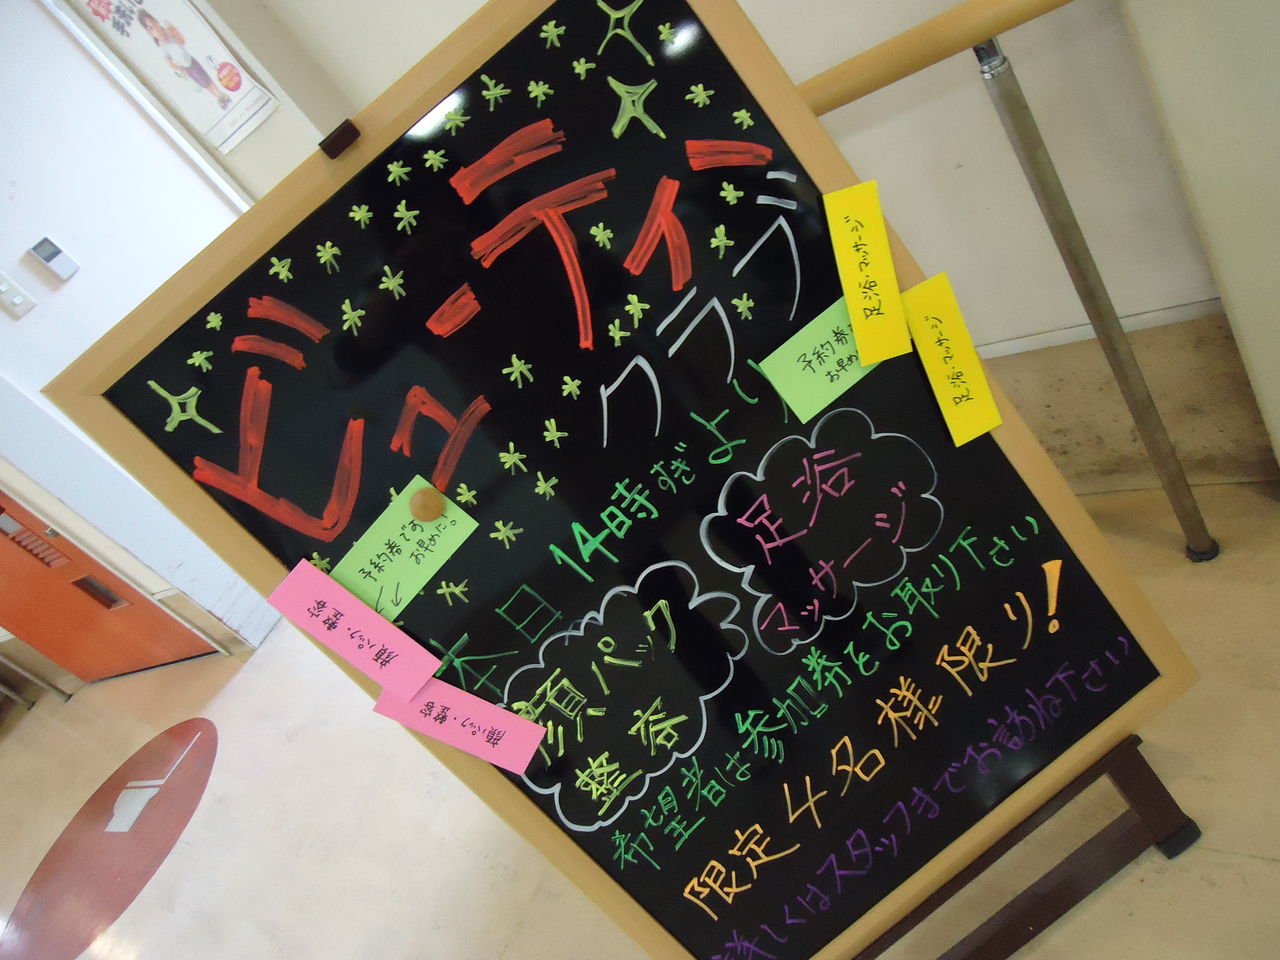 ビューティ
クラブ
本日 14時すぎより
足浴
マッサージ
顔パック
整容
希望者は参加券をお取り下さい
限定4名様限り!
詳しくはスタッフまでお訪ね下さい
予約券です
お早めに!。
顔パック・整容
顔パック・整容
予約券で
お早め
足浴・マッサージ
足浴・マッサージ